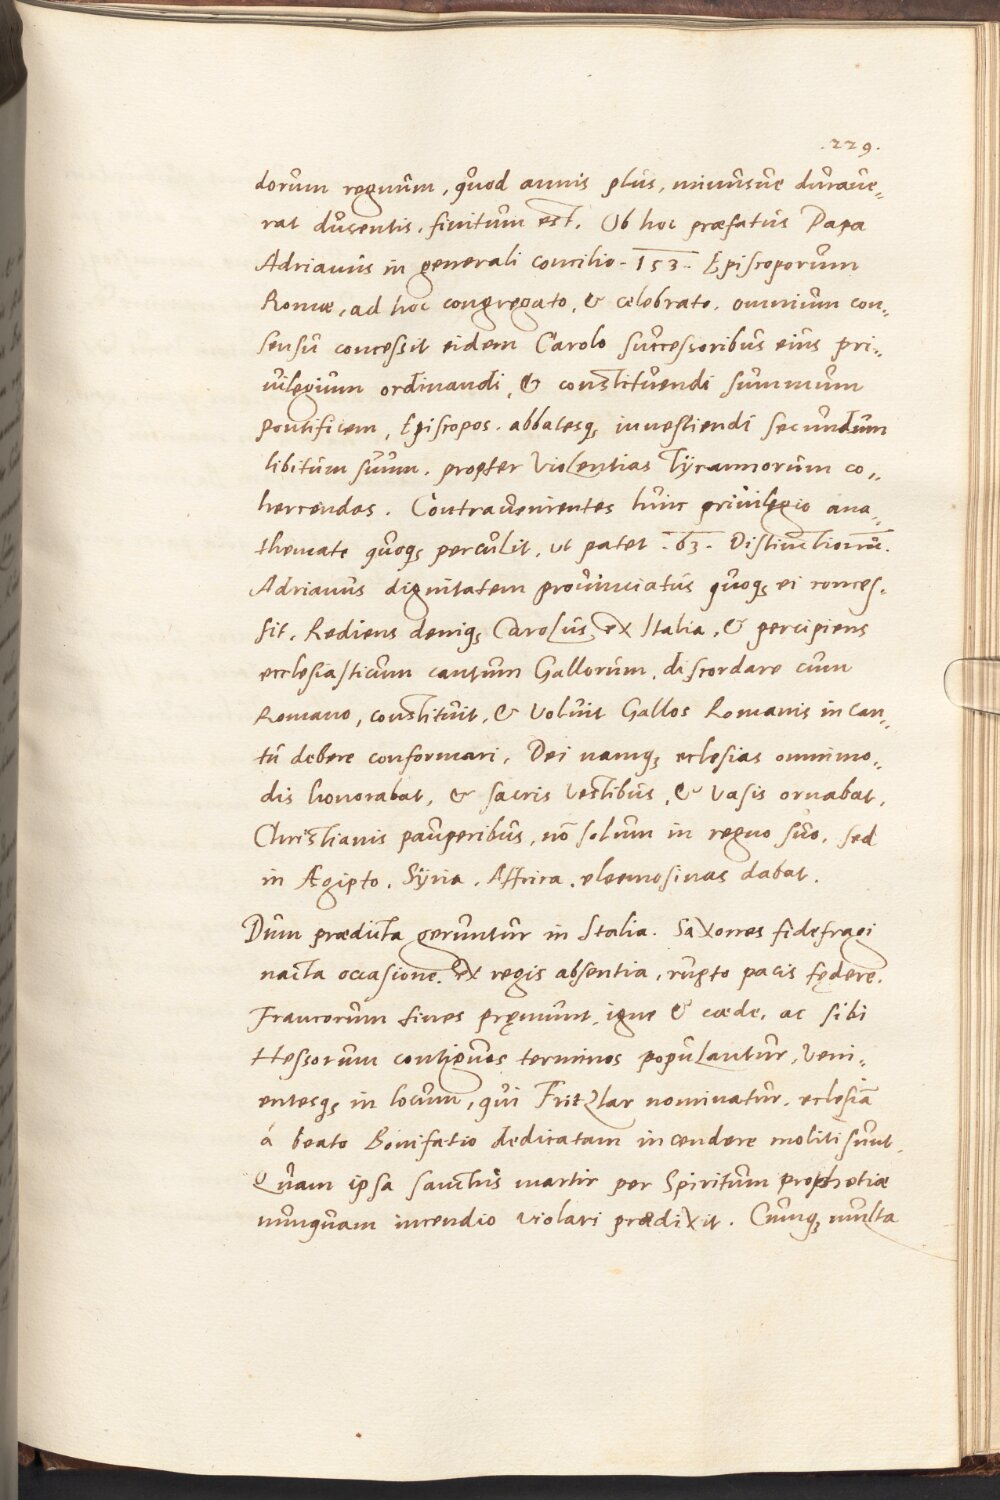 .229.
dorum regnum, quod annis plus, minusue duraue„
rat ducentis, finitum est. Ob hoc præfatus Papa
Adrianus in generali concilio - 153 - Episcoporum
Romæ, ad hoc congregato, & celebrato, omnium con„
sensu concessit eidem Carolo successoribus eius pri„
uilegium ordinandi, & constituendi summum
Pontificem, Episcopos, abbatesq; inuestiendi secundum
libitum suum, propter violentias Tyrannorum co„
hercendas. Contrauenientes huic priuilegio ana„
themate quoq; perculit, ut patet .63. Distinctionū.
Adrianus dignitatem prouinciatus quoq; ei conces„
sit. Rediens deniq; Carolus, ex Italia, & percipiens
ecclesiasticum cantum Gallorum, discordare cum
Romano, constituit, & voluit Gallos Romanis in can„
tu debere conformari. Dei namq; eclesias omnimo„
dis honorabat, & sacris vestibus, & vasis ornabat,
Christianis pauperibus, nō solum in regno suo, sed
in Ægipto, Syria, Affrica, eleemosinas dabat.
Dum prædicta geruntur in Italia. Saxones fidefragi
nacta occasione, ex regis absentia, rupto pacis fędere,
Francorum fines pręmunt, igne & cæde, ac sibi
Hessorum contiguos terminos populantur, veni„
entesq; in locum, qui Fritzlar nominatur, eclesiā
á beato Bonifatio dedicatam incendere moliti sunt,
Quam ipsa sanctus martir per Spiritum prophetiæ
nunquam incendio violari prædixit. Cumq; multa